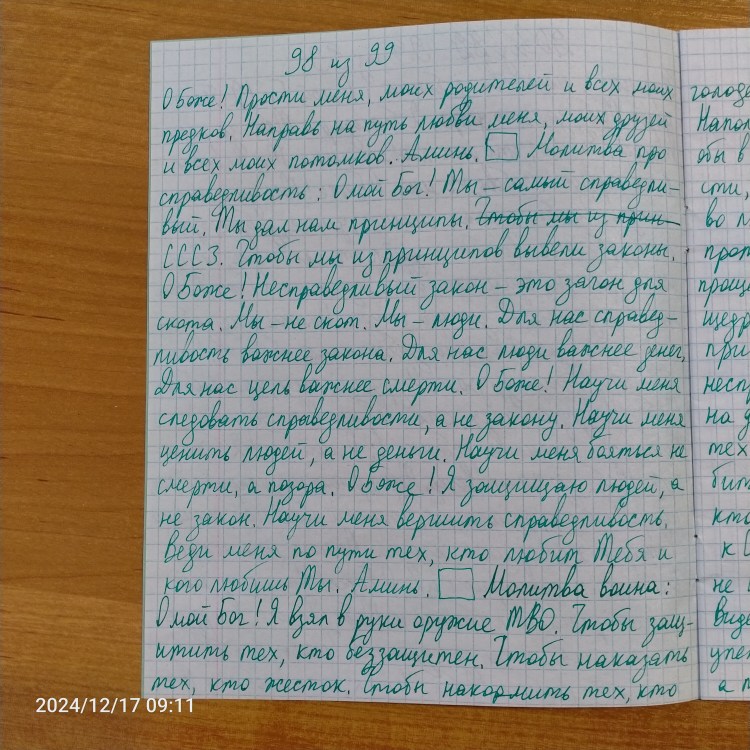 98 из 99
О Боже! Прости меня, моих родителей и всех моих
предков. Направь на путь любви меня, моих друзей
и всех моих потомков. Аминь. Молитва про
справедливость: О мой Бог! Ты – самый справедли-
вый. Ты дал нам принципы. Чтобы мы из прин-
СССЗ. Чтобы мы из принципов вывели законы.
О Боже! Несправедливый закон – это загон для
скота. Мы – не скот. Мы – люди. Для нас справед-
ливость важнее закона. Для нас люди важнее денег.
Для нас цель важнее смерти. О Боже! Научи меня
следовать справедливости, а не закону. Научи меня
ценить людей, а не деньги. Научи меня бояться не
смерти, а позора. О Боже! Я защищаю людей, а
не закон. Научи меня вершить справедливость.
Веди меня по пути тех, кто любит Тебя и
кого любишь Ты. Аминь. Молитва воина:
О мой Бог! Я взял в руки оружие ТВО. Чтобы защ-
итить тех, кто беззащитен. Чтобы наказать
тех, кто жесток. Чтобы накормить тех, кто
голоде
Напо
обы в
сти,
во п
прот
проще
щедр
при
несп
на д
тех
бит
кто
к
не
виде
упе
а п
2024/12/17 09:11